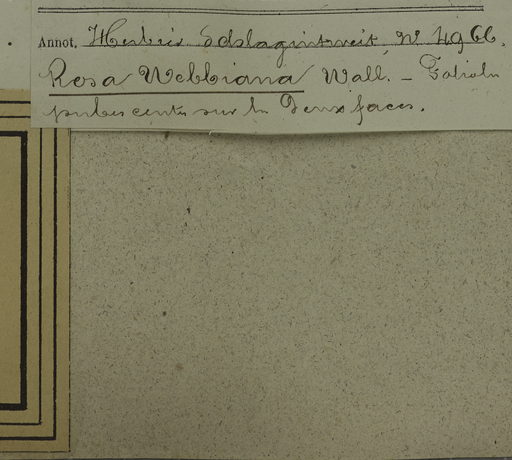 Annot. Herbier Schlagintweit, N° 4966.
Rosa Webbiana Wall. — Folioles
pubescentes sur les deux faces.